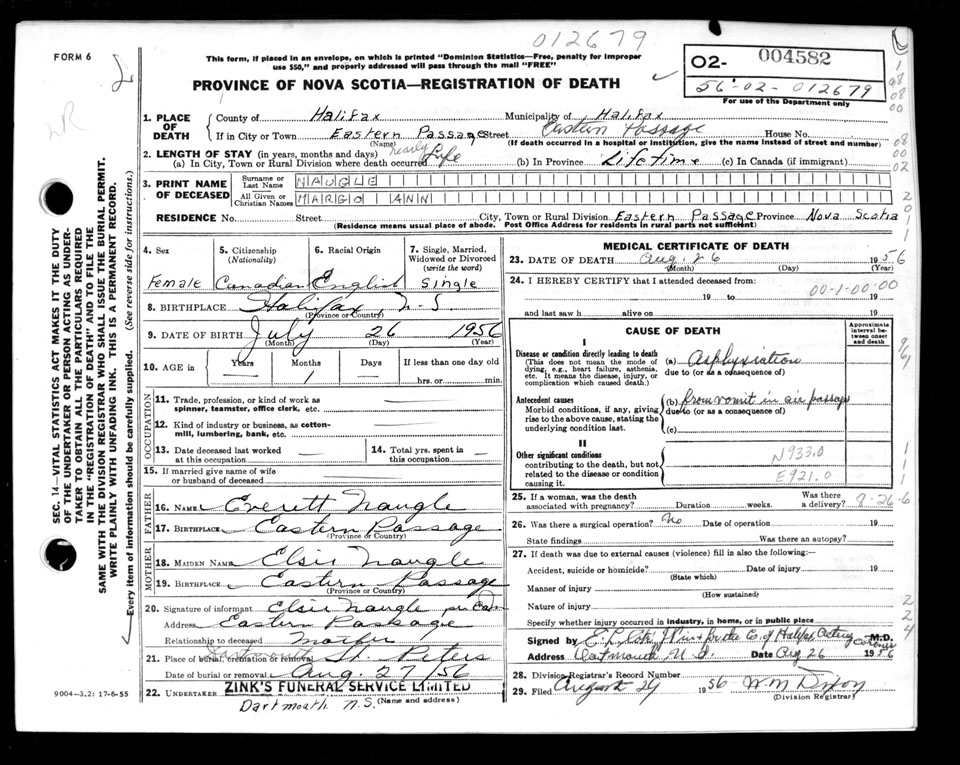 012679
FORM 6
This form, if placed in an envelope, on which is printed "Dominion Statistics—Free, penalty for improper
use $50," and properly addressed will pass through the mail "FREE"
O2- 004582
56-02-012679
For use of the Department only
PROVINCE OF NOVA SCOTIA—REGISTRATION OF DEATH
1. PLACE OF DEATH
County of Halifax Municipality of Halifax
If in City or Town Eastern Passage Street Eastern Passage House No.
(Name) (If death occurred in a hospital or institution, give the name instead of street and number)
2. LENGTH OF STAY (in years, months and days)
(a) In City, Town or Rural Division where death occurred nearly Life (b) In Province Lifetime (c) In Canada (if immigrant)
3. PRINT NAME OF DECEASED
Surname or Last Name NAUGLE
All Given or Christian Names MARGO ANN
RESIDENCE No. Street City, Town or Rural Division Eastern Passage Province Nova Scotia
(Residence means usual place of abode. Post Office Address for residents in rural parts not sufficient)
4. Sex 5. Citizenship (Nationality) 6. Racial Origin 7. Single, Married, Widowed or Divorced (write the word)
Female Canadian English Single
8. BIRTHPLACE Halifax N.S.
(Province or Country)
9. DATE OF BIRTH July 26 1956
(Month) (Day) (Year)
10. AGE in Years Months Days If less than one day old
1 hrs. or min.
OCCUPATION
11. Trade, profession, or kind of work as
spinner, teamster, office clerk, etc.
12. Kind of industry or business, as cotton-
mill, lumbering, bank, etc.
13. Date deceased last worked
at this occupation
14. Total yrs. spent in
this occupation
15. If married give name of wife
or husband of deceased
FATHER
16. NAME Everett Naugle
17. BIRTHPLACE Eastern Passage
(Province or Country)
MOTHER
18. MAIDEN NAME Elsie Naugle
19. BIRTHPLACE Eastern Passage
(Province or Country)
20. Signature of informant Elsie Naugle per
Address Eastern Passage
Relationship to deceased Mother
21. Place of burial, cremation or removal Dartmouth St. Peters
Date of burial or removal Aug. 27/56
22. UNDERTAKER ZINK'S FUNERAL SERVICE LIMITED
Dartmouth N.S. (Name and address)
9004-3.2: 17-6-55
MEDICAL CERTIFICATE OF DEATH
23. DATE OF DEATH Aug. 26 1956
(Month) (Day) (Year)
24. I HEREBY CERTIFY that I attended deceased from:
00-1-00-00
19 to 19
and last saw h alive on 19
CAUSE OF DEATH
Approximate interval between onset and death
I
Disease or condition directly leading to death
(This does not mean the mode of
dying, e.g., heart failure, asthenia,
etc. It means the disease, injury, or
complication which caused death.)
(a) Asphyxiation
due to (or as a consequence of)
Antecedent causes
Morbid conditions, if any, giving
rise to the above cause, stating the
underlying condition last.
(b) from vomit in air passage
due to (or as a consequence of)
(c)
II
Other significant conditions
contributing to the death, but not
related to the disease or condition
causing it.
N933.0
E921.0
25. If a woman, was the death
associated with pregnancy? Duration weeks. Was there a delivery? 8-26-6
26. Was there a surgical operation? No Date of operation 19
State findings Was there an autopsy?
27. If death was due to external causes (violence) fill in also the following:—
Accident, suicide or homicide? Date of injury 19
(State which)
Manner of injury
(How sustained)
Nature of injury
Specify whether injury occurred in industry, in home, or in public place
Signed by for the Co. of Halifax Acting M.D.
Address Dartmouth N.S. Date Aug 26 1956
28. Division Registrar's Record Number
29. Filed August 29 1956 W.M. Dixon
(Division Registrar)
SEC. 14—VITAL STATISTICS ACT MAKES IT THE DUTY
OF THE UNDERTAKER OR PERSON ACTING AS UNDER-
TAKER TO OBTAIN ALL THE PARTICULARS REQUIRED
IN THE "REGISTRATION OF DEATH" AND TO FILE THE
SAME WITH THE DIVISION REGISTRAR WHO SHALL ISSUE THE BURIAL PERMIT.
WRITE PLAINLY WITH UNFADING INK. THIS IS A PERMANENT RECORD.
Every item of information should be carefully supplied. (See reverse side for instructions.)